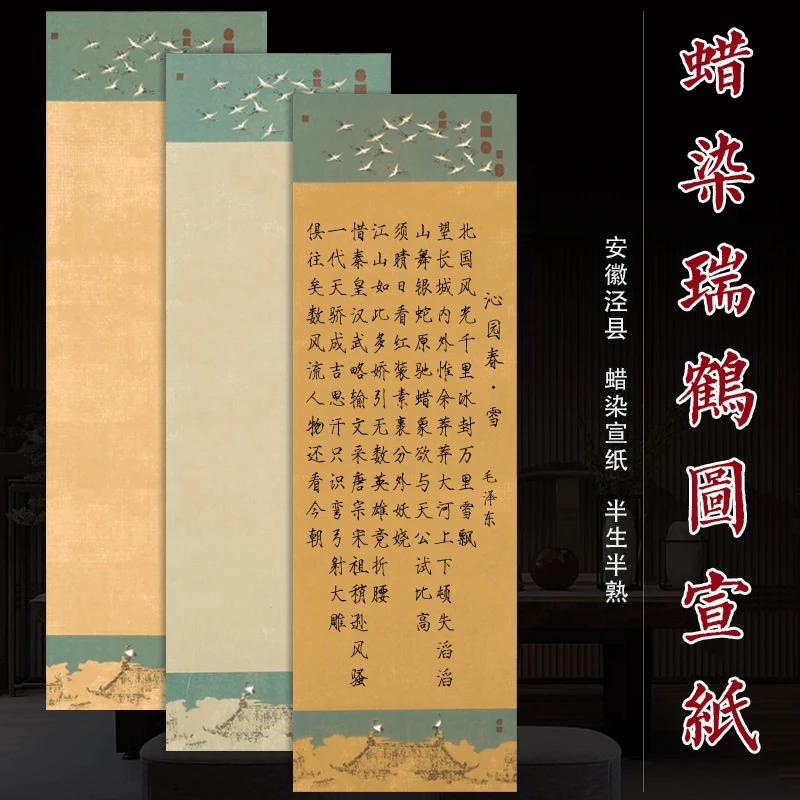 蜡染瑞鶴圖宣紙
安徽泾县 蜡染宣纸 半生半熟
沁园春·雪 毛泽东
北国风光千里冰封万里雪飘
望长城内外惟余莽莽大河上下顿失滔滔
山舞银蛇原驰蜡象欲与天公试比高
须晴日看红装素裹分外妖娆
江山如此多娇引无数英雄竞折腰
惜秦皇汉武略输文采唐宗宋祖稍逊风骚
一代天骄成吉思汗只识弯弓射大雕
俱往矣数风流人物还看今朝